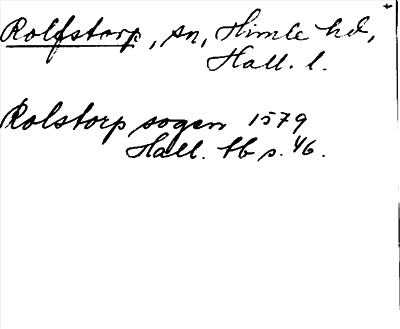 Rolfstorp, sn, Himle hd,
Hall. l.
Rolstorp sogen 1579
Hall. tb s. 46.